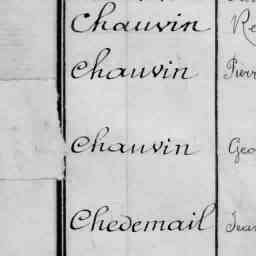 Chauvin Re
Chauvin Pierr
Chauvin Geo
Chedemail Jean